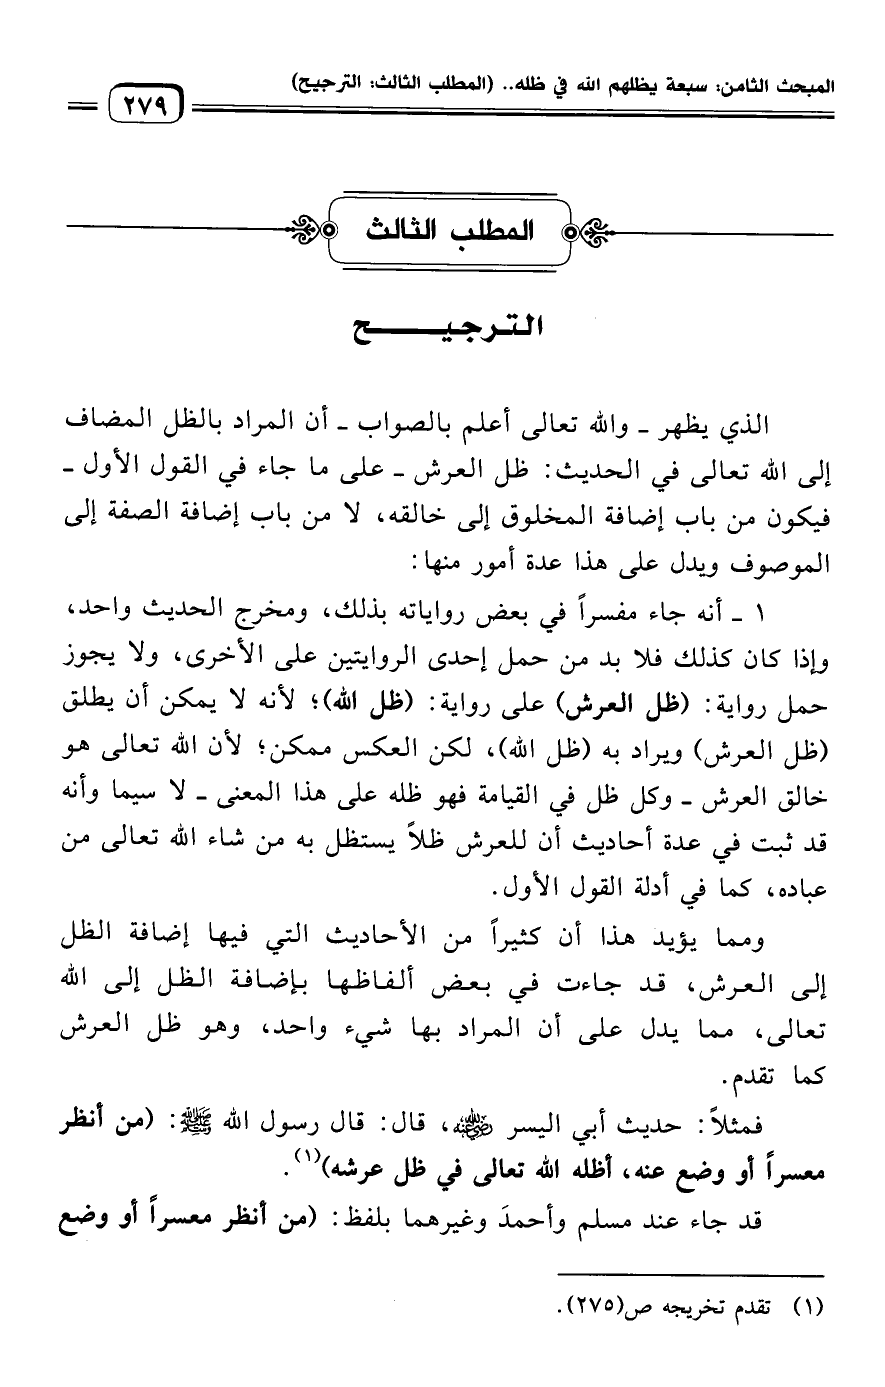 المبحث الثامن: سبعة يظلهم الله في ظله.. (المطلب الثالث: الترجيح)
٢٧٩
المطلب الثالث
الترجيـــــح
الذي يظهر ـ والله تعالى أعلم بالصواب ـ أن المراد بالظل المضاف
إلى الله تعالى في الحديث: ظل العرش ـ على ما جاء في القول الأول ـ
فيكون من باب إضافة المخلوق إلى خالقه، لا من باب إضافة الصفة إلى
الموصوف ويدل على هذا عدة أمور منها:
١ ـ أنه جاء مفسراً في بعض رواياته بذلك، ومخرج الحديث واحد،
وإذا كان كذلك فلا بد من حمل إحدى الروايتين على الأخرى، ولا يجوز
حمل رواية: (ظل العرش) على رواية: (ظل الله)؛ لأنه لا يمكن أن يطلق
(ظل العرش) ويراد به (ظل الله)، لكن العكس ممكن؛ لأن الله تعالى هو
خالق العرش ـ وكل ظل في القيامة فهو ظله على هذا المعنى ـ لا سيما وأنه
قد ثبت في عدة أحاديث أن للعرش ظلاً يستظل به من شاء الله تعالى من
عباده، كما في أدلة القول الأول.
ومما يؤيد هذا أن كثيراً من الأحاديث التي فيها إضافة الظل
إلى العرش، قد جاءت في بعض ألفاظها بإضافة الظل إلى الله
تعالى، مما يدل على أن المراد بها شيء واحد، وهو ظل العرش
كما تقدم.
فمثلاً: حديث أبي اليسر رضي الله عنه، قال: قال رسول الله ﷺ: (من أنظر
معسراً أو وضع عنه، أظله الله تعالى في ظل عرشه)(١).
قد جاء عند مسلم وأحمدَ وغيرهما بلفظ: (من أنظر معسراً أو وضع
(١) تقدم تخريجه ص(٢٧٥).